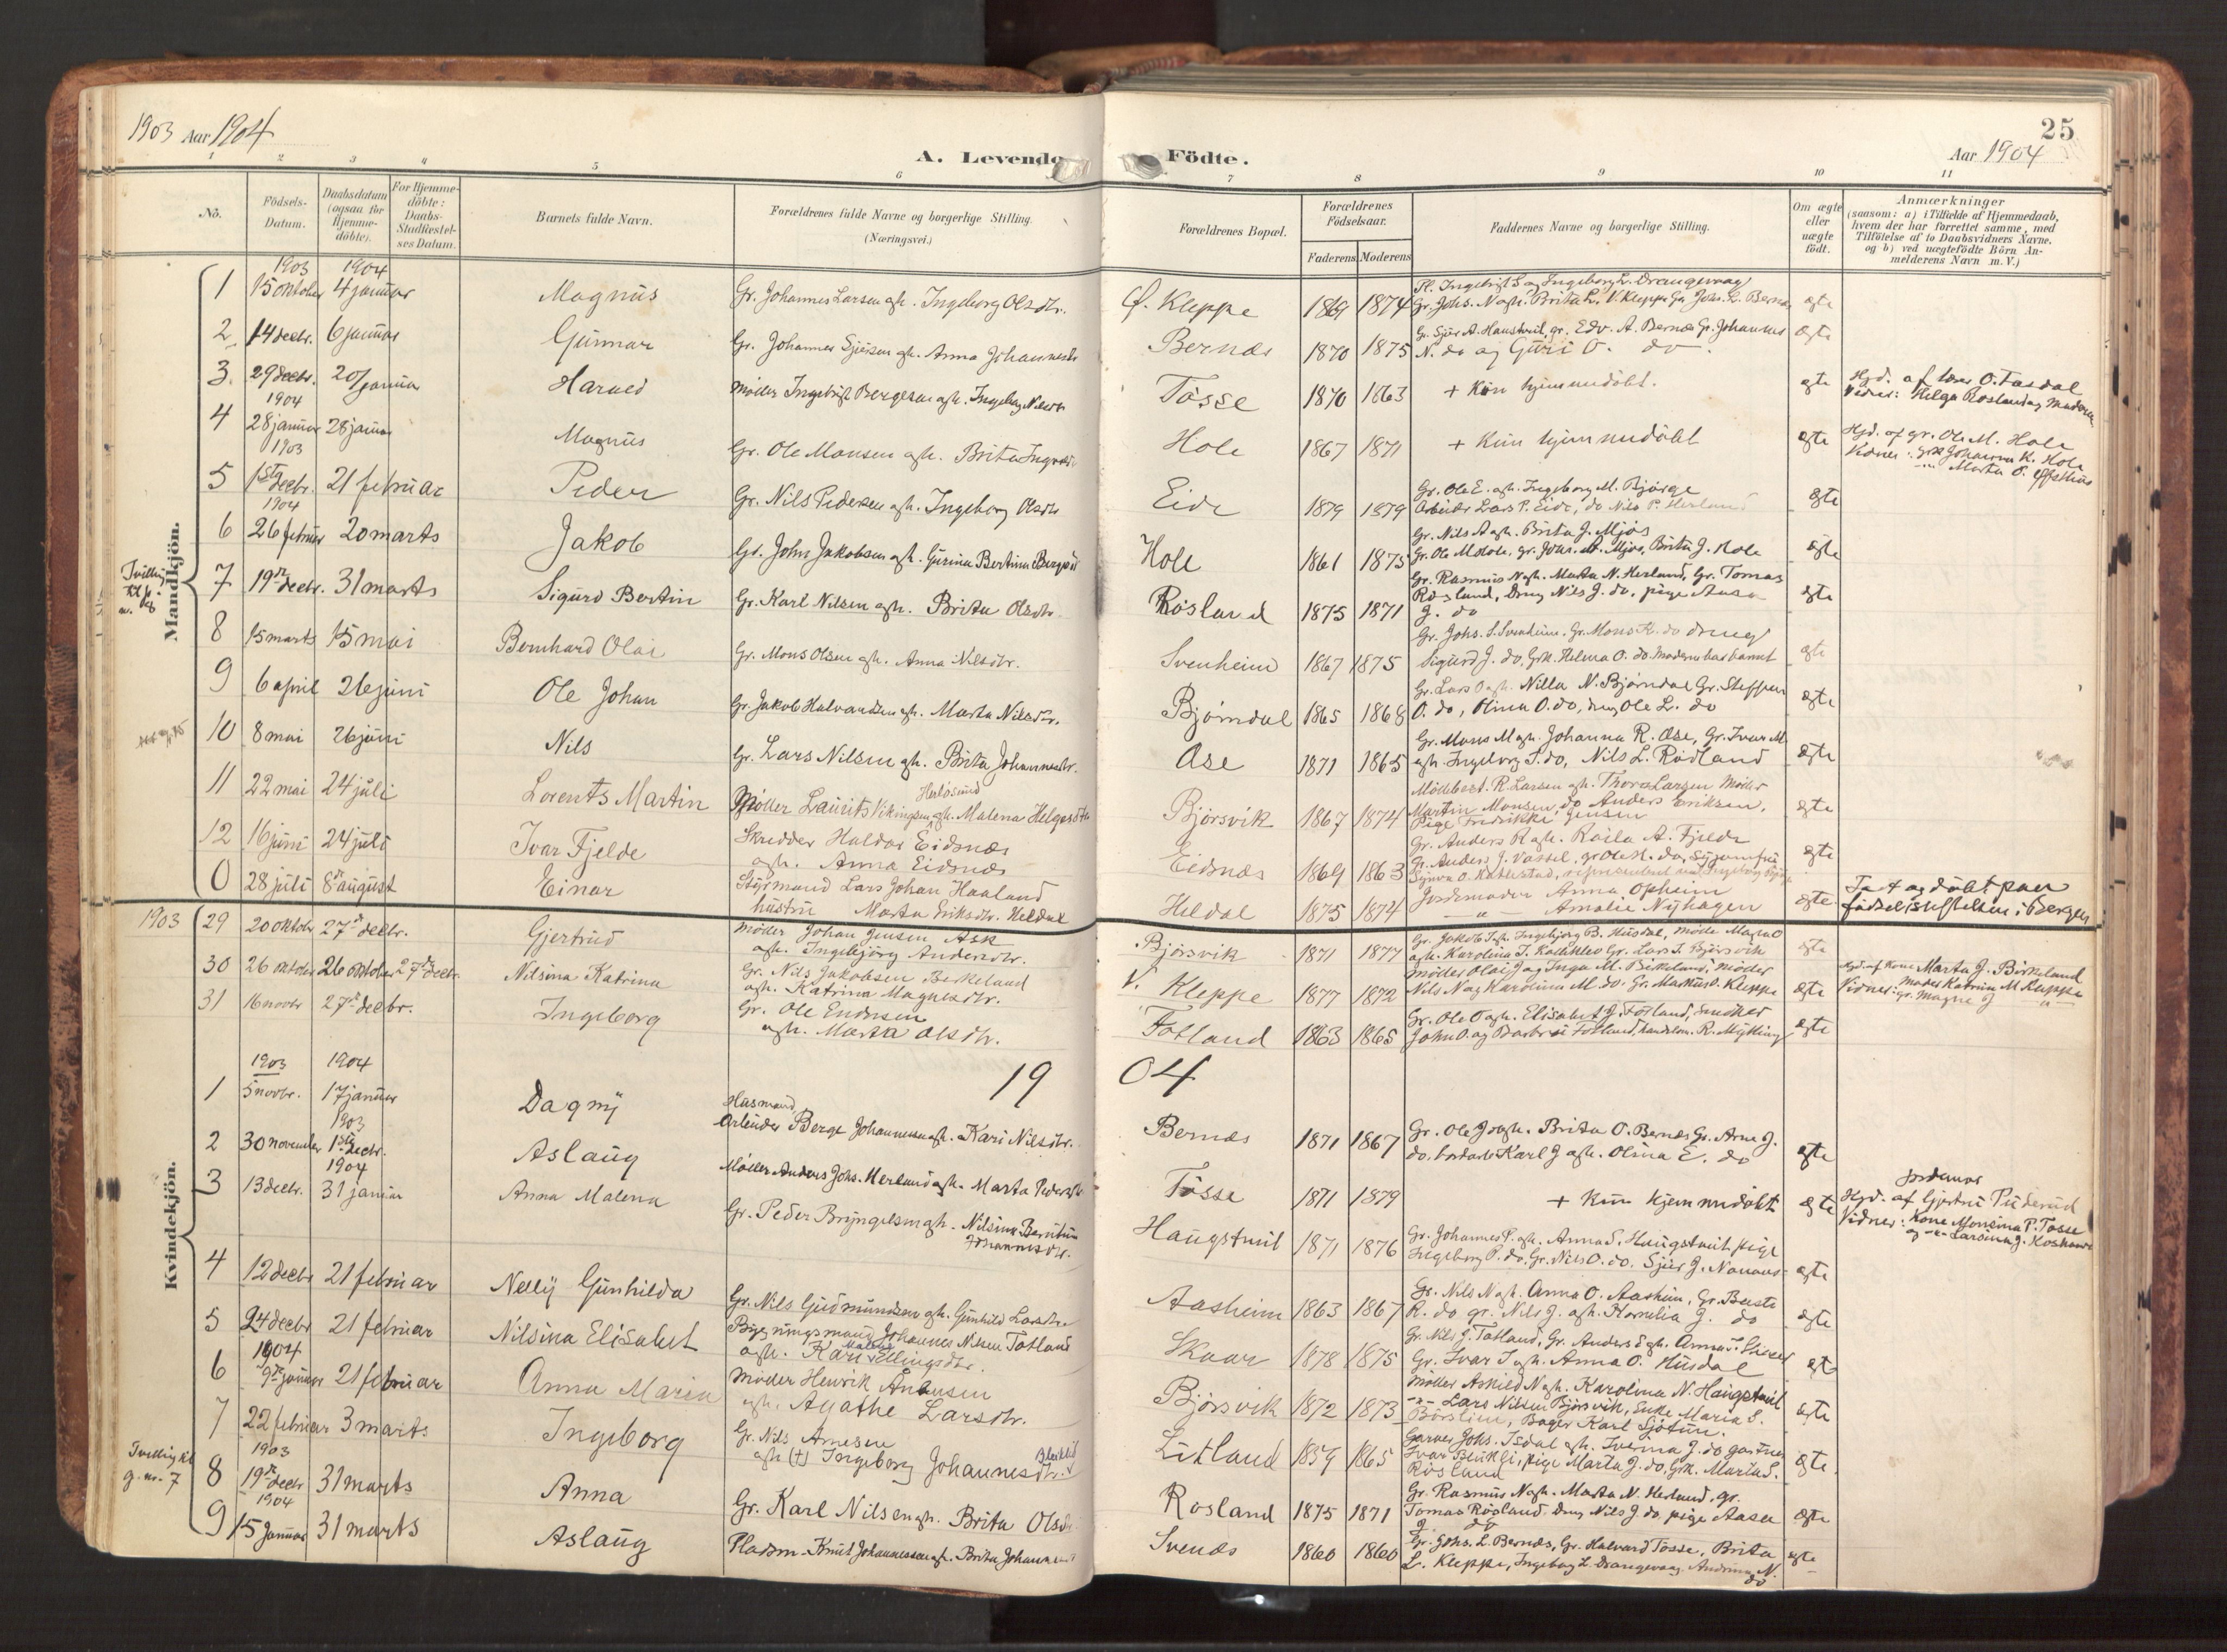 1903 Aar 1904
A. Levende Födte.
25
Aar 1904
1 2 3 4 5 6 7 8 9 10 11
No.
Födsels-Datum.
Daabsdatum (ogsaa for Hjemme-döbte).
For Hjemme-döbte: Daabs-Stadfæstel-ses Datum.
Barnets fulde Navn.
Forældrenes fulde Navne og borgerlige Stilling. (Næringsvei.)
Forældrenes Bopæl.
Forældrenes Födselsaar.
Faderens Moderens
Faddernes Navne og borgerlige Stilling.
Om ægte eller uægte födt.
Anmærkninger
(saasom: a) i Tilfælde af Hjemmedaab, hvem der har forrettet samme, med Tilföielse af to Daabsvidners Navne. og b) ved uægtefödte Börn An-melderens Navn m. V.)
Mandkjön.
1903 1904
1 15 oktober 4 januar Magnus Gr. Johannes Larsen og h. Ingeborg Olsdtr. Ø. Kleppe 1869 1874 Pl. Ingebrigt S. og Ingeborg L. Drangevaag Gr. Johs. N. og h. Brita L. V. Kleppe Gr. Johs. L. Bernes ægte
2 14 decbr. 6 januar Gunnar Gr. Johannes Sjursen og h. Anna Johannesdtr Bernæs 1870 1875 Gr. Sjur A. Haustveit, gr. Edv. A. Bernæs Gr. Johannes N. do og Guri O. do ægte
3 29 decbr. 20 januar Harald Møller Ingebrigt Bergesen og h. Ingeborg Nilsdtr Tøsse 1870 1863 + Kun hjemmedöbt. ægte Hjd. af lærer O. Tøsdal Vidner: Helga Rosland og Moderen
1904
4 28 januar 28 januar Magnus Gr. Ole Monsen og h. Brita Hole 1867 1871 + Kun hjemmedöbt ægte Hjd. af gr. Ole M. Hole Vidner: Grk Johanna K. Hole
1903
5 1ste decbr. 21 februar Peder Gr. Nils Pedersen og h. Ingeborg Olsdtr Eide 1879 1879 Gr. Ole E. og h. Ingeborg M. Bjørge Arbeider Lars P. Eide, do Nils P. Herland ægte
1904
6 26 februar 20 marts Jakob Gr. John Jakobsen og h. Gurina Bertina Hole 1861 1875 Gr. Nils A og h. Brita J. Mjøs Gr. Ole M. Hole, gr. Johs. A. Mjøs, Brita J. Hole ægte
Tvilling n. 8
7 19de decbr. 31 marts Sigurd Bertin Gr. Karl Nilsen og h. Brita Olsdtr. Røsland 1875 1871 Gr. Rasmus N. og h. Marta N. Herland, Gr. Tomas Røsland, Dreng Nils J. do, pige Aasa J. do ægte
8 15 marts 15 mai Bernhard Olai Gr. Mons Olsen og h. Anna Nilsdtr. Svenheim 1867 1875 Gr. Johs. S. Svenheim. Gr. Mons K. do dreng Sigurd J. do, Grk. Helena O. do. Moderen bar barnet ægte
9 6 april 26 juni Ole Johan Gr. Jakob Halvardsen og h. Marta Nilsdtr. Bjørndal 1865 1868 Gr. Lars O og h. Nilla N. Bjørndal Gr. Steffen O. do, Olina O. do, dreng Ole L. do ægte
10 8 mai 26 juni Nils Gr. Lars Nilsen og h. Brita Johannesdtr. Ose 1871 1865 Gr. Mons M. og h. Johanna R. Ose, Gr. Ivar M og h. Ingeborg T. do, Nils L. Rødland ægte
11 22 mai 24 juli Lorents Martin Møller Laurits Vikingsen Herlösund og h. Malena Helgesdtr Bjørsvik 1867 1874 Möllebest. R. Larsen og h. Thora Larsen Møller Martin Monsen, do Anders Eriksen, Pige Fredrikke Jensen ægte
12 16 juni 24 juli Ivar Fjelde Skredder Haldor Eidsnæs og h. Anna Eidsnæs Eidsnæs 1869 1863 Gr. Anders R. og h. Raila A. Fjelde Gr. Anders J. Vassel, gr. Ole K. do ægte
0 28 juli 8de august Einar Styrmand Lars Johan Haaland hustru Marta Eriksdtr. Heldal Heldal 1875 1874 Jordemoder Anna Opheim — " — Amalie Nyhagen ægte Født og döbt paa födselsstiftelsen i Bergen
Kvindekjön.
1903
29 20 oktobr 27de decbr. Gjertrud Møller Johan Jensen Ask og h. Ingebjørg Andersdtr. Bjørsvik 1871 1877 Gr. Jakob J. og h. Ingebjørg B. Husdal, Møller Magne O og h. Karolina T. Gr. Lars T. Bjørsvik ægte
30 26 oktober 26 oktober 27de decbr. Nilsina Katrina Gr. Nils Jakobsen Berkeland og h. Katrina Magnesdtr. V. Kleppe 1877 1872 Møller Olai J og Inga M. Birkeland, Møller Nils N og Karolina M. do. Gr. Markus O. Kleppe ægte Hjd. af Kone Marta J. Birkeland Vidner: Moder Katrina M. Kleppe gr. Magne J
31 16 novbr 27de decbr. Ingeborg Gr. Ole Endresen og h. Marta Olsdtr. Fotland 1863 1865 Gr. Ole O og h. Elisabet J. Fotland, Snedker John O. og Barbro Fotland, handelsm. R. Mykling ægte
1904
1903 1904
1 5 novbr. 17 januar Dagny Husmand Arbeider Berge Johannesen og h. Kari Nilsdtr. Bernæs 1871 1867 Gr. Ole J og h. Brita O. Bernæs Gr. Arne J. do. Karl J og h. Olina E. do ægte
1903
2 30 november 1ste decbr. Aslaug Møller Anders Johs. Herland og h. Marta Pedersdtr Tøsse 1871 1879 + Kun hjemmedöbt ægte Jordemor Hjd. af Gjertrud Puderud Vidner: Kone Monsina P. Tøsse og — " — Larsina J.
1904
3 13 decbr. 31 januar Anna Malena Gr. Peder Bryngelsen og h. Nilsina Berntina Johannesdtr. Haugstveit 1871 1876 Gr. Johannes P. og h. Anna S. Haugstveit, pige Ingeborg P. do, Gr. Nils O. do. Sjur J. ægte
4 12 decbr 21 februar Nelly Gunhilda Gr. Nils Gudmundsen og h. Gunhild Larsdtr Aasheim 1863 1867 Gr. Nils N og h. Anna O. Aasheim, Gr. Berste R. do gr. Nils J. og h. Kornelia J. do ægte
5 24 decbr 21 februar Nilsina Elisabet Bygningsmand Johannes Nilsen Totland og h. Kari Malene Ellingsdtr. Skaar 1878 1875 Gr. Nils J. Totland, Gr. Anders E og h. Anna J. Gr. Ivar I og h. Anna O. Husdal ægte
1904
6 9de januar 21 februar Anna Maria Møller Henrik Andersen og h. Agathe Larsdtr. Bjørsvik 1872 1873 Møller Askild N og h. Karolina N. Haugstveit — " — Lars Nilsen Bjørsvik, Enke Maria S. Börslien, Bager Karl Sjøtun. ægte
7 22 februar 3 marts Ingeborg Gr. Nils Arnesen og h (+) Ingeborg Johannesdtr. Litland 1859 1865 Garver Johs. Isdal og h. Iverina J. do gartner Ivar pige Marta J. do, Grk. Marta S. Røsland ægte
Tvilling g. nr. 7
1903
8 19de decbr 31 marts Anna Gr. Karl Nilsen og h. Brita Olsdtr Røsland 1875 1871 Gr. Rasmus N og h. Marta N. Herland, gr. Tomas Røsland, Dreng Nils J do, pige Aasa J. do ægte
1904
9 15 januar 31 marts Aslaug Pladsm. Knut Johannessen og h. Brita Johannesdtr Svenæs 1860 1860 Gr. Johs. L. Bernæs, Gr. Halvard Tøsse, Brita L. Kleppe, Ingeborg L. Drangevaag, Andrina N. do ægte